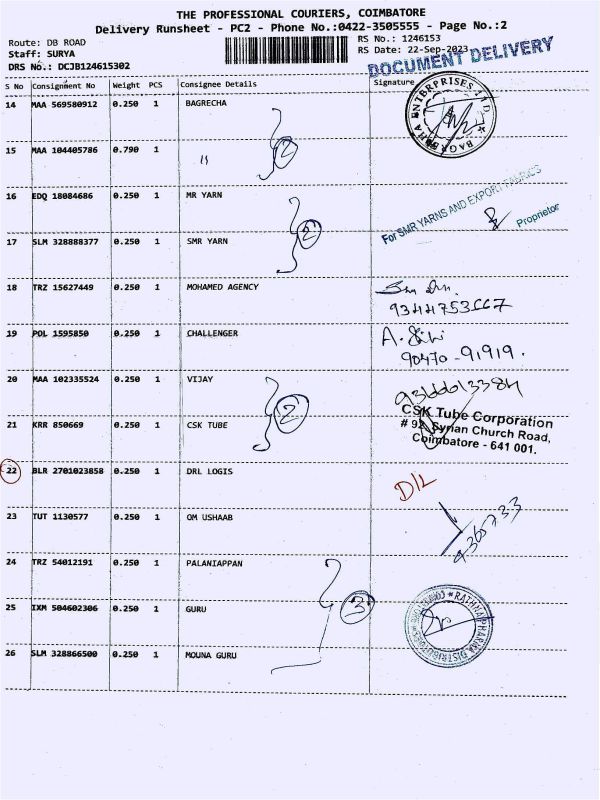 THE PROFESSIONAL COURIERS, COIMBATORE
Delivery Runsheet - PC2 - Phone No.:0422-3505555 - Page No.:2
Route: DB ROAD
RS No.: 1246153
Staff: SURYA
RS Date: 22-Sep-2023
DRS No.: DCJB124615302
DOCUMENT DELIVERY
S No Consignment No Weight PCS Consignee Details Signature
14 MAA 569580912 0.250 1 BAGRECHA
BAGRECHA ENTERPRISES LTD
15 MAA 104405786 0.790 1 "
2
16 EDQ 18084686 0.250 1 MR YARN
For SMR YARNS AND EXPORT FABRICS
Proprietor
2
17 SLM 328888377 0.250 1 SMR YARN
18 TRZ 15627449 0.250 1 MOHAMED AGENCY
9344753667
19 POL 1595850 0.250 1 CHALLENGER
90470-91919.
20 MAA 102335524 0.250 1 VIJAY
9366613384
2
CSK Tube Corporation
# 92, Syrian Church Road,
Coimbatore - 641 001.
21 KRR 850669 0.250 1 CSK TUBE
22 BLR 2701023858 0.250 1 DRL LOGIS
D/L
23 TUT 1130577 0.250 1 OM USHAAB
24 TRZ 54012191 0.250 1 PALANIAPPAN
25 IXM 504602306 0.250 1 GURU
3
RATHNA PHARMA DISTRIBUTORS
26 SLM 328866500 0.250 1 MOUNA GURU